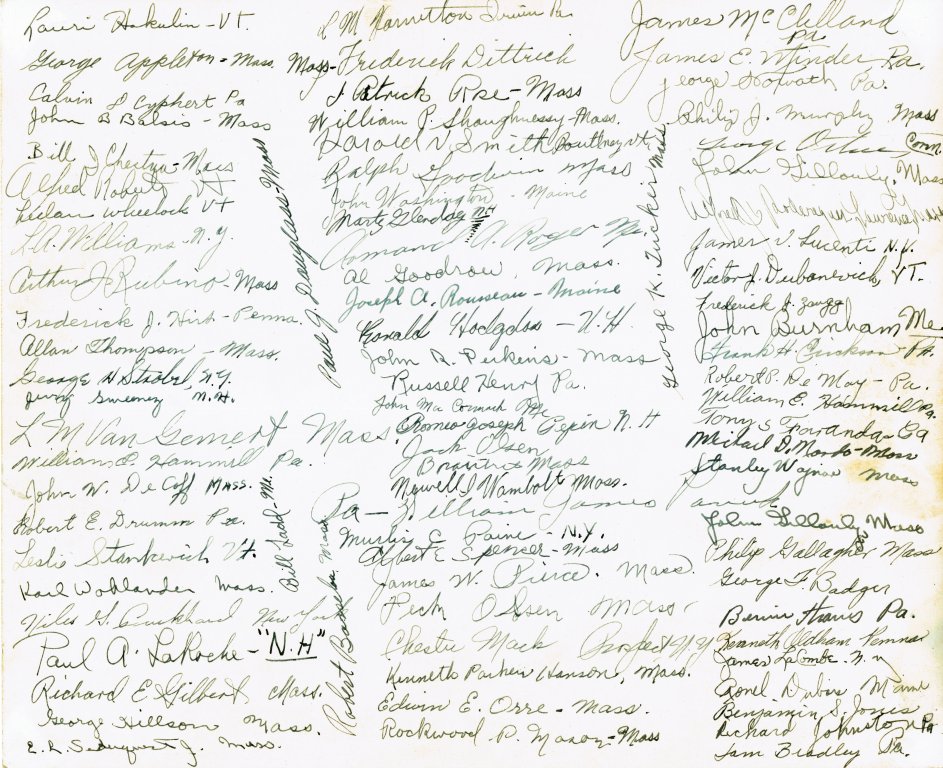 Lauri Hakulin - VT.
George Appleton - Mass.
Calvin L Cyphert Pa
John B Balsis - Mass
Bill J Chestya - Mass
Alfred Roberts VT
Leclair Wheelock VT
L.A. Williams - N.Y.
Arthur J Rubino - Mass
Frederick J. Hirt - Penna.
Allan Thompson - Mass.
George H Strobel, N.Y.
Jerry Sweeney N.H.
L M Van Gemert Mass.
William E. Hammill Pa.
John W. DeCoff Mass.
Robert E. Drumm Pa.
Leslie Stankevich Vt.
Karl Wohlander Mass.
Niles G. New York
Paul A. LaRoche - "N.H"
Richard E Gilbert, Mass.
George Hillson Mass.
E. R. Mass.
Paul J. Douglass - Mass
Bill Ladd - Me.
Robert Mass
L M Hamilton Irwin Pa.
Mass - Frederick Dittrich
J Patrick Roe - Mass
William P. Shaughnessy - Mass.
Harold V. Smith Poultney Vt.
Ralph Goodwin Mass
John Washington - Maine
Martz Glenday NY
Armand A. Roger Me.
Al Goodrow, Mass.
Joseph A. Rousseau - Maine
Gerald Hodgdon - N.H.
John R. Perkins - Mass
Russell Henry Pa.
John MacCormack
Romeo Joseph Pepin N.H
Jack Olsen
Braintree Mass
Newell I Wambolt Mass.
Pa - William James
Murlis C Paine - N.Y.
Albert E Spencer - Mass
James W. Pierce. Mass.
Peck Olsen Mass.
Chester Mack N.Y
Kenneth Parker Hanson, Mass.
Edwin E. Orre - Mass.
Rockwood P. Mason - Mass
George K. Tucker Mass
James McClelland
Pa.
James E. Pa.
George Horvath Pa.
Philip J. Murphy Mass
George Conn.
John Gillouly. Mass
Alfred
James V. Lucenti N.Y.
Victor J. Dubanevich, VT.
Frederick J. Zaugg
John Burnham Me.
Frank H. Erickson - Pa.
Robert P. DeMay - Pa.
William E. Hammill Pa.
Tony S Faranda - Pa
Michael D. Mardo - Mass
Stanley Wajnar Mass
John Gillouly Mass
Philip Gallagher Mass
George F Badger
Bernie Harris Pa.
Kenneth Oldham Penna
James LaCombe. N.Y
Lionel Dubis Maine
Benjamin S. Jones
Richard Johnston Pa
Sam Bradley Pa.